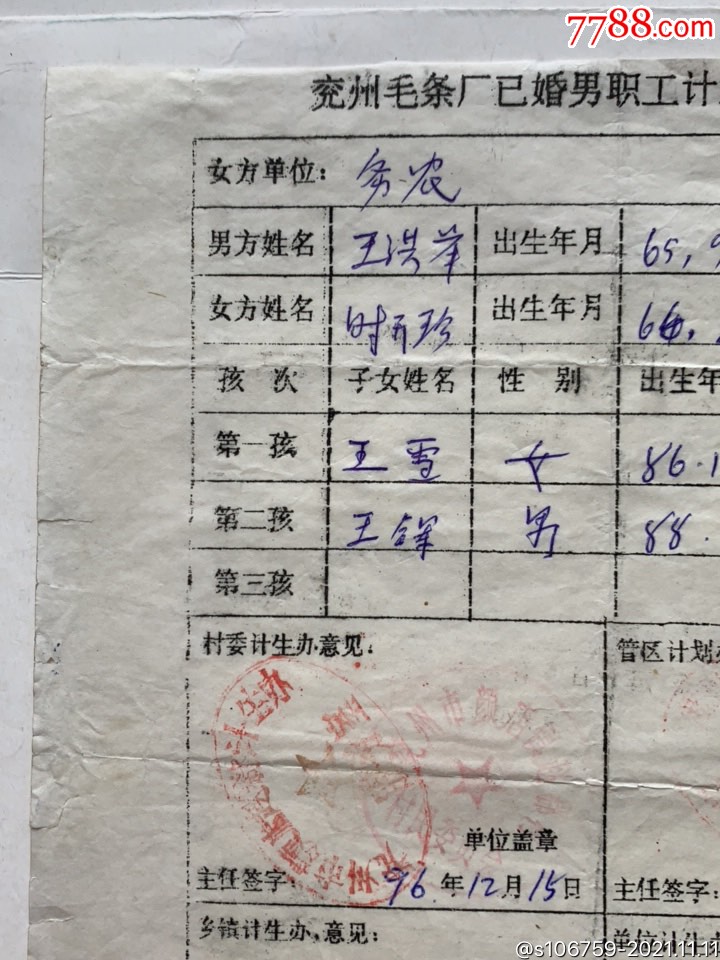 7788.com
兖州毛条厂已婚男职工计
女方单位： 务农
男方姓名 王洪举 出生年月 65,9
女方姓名 时 珍 出生年月 64,
孩 次 子女姓名 性 别 出生年
第一孩 王雪 女 86.1
第二孩 王 男 88.
第三孩
村委计生办意见： 管区计划
单位盖章
主任签字： 96 年12月15日 主任签字：
乡镇计生办，意见： 单位计生
@s106759-20211111